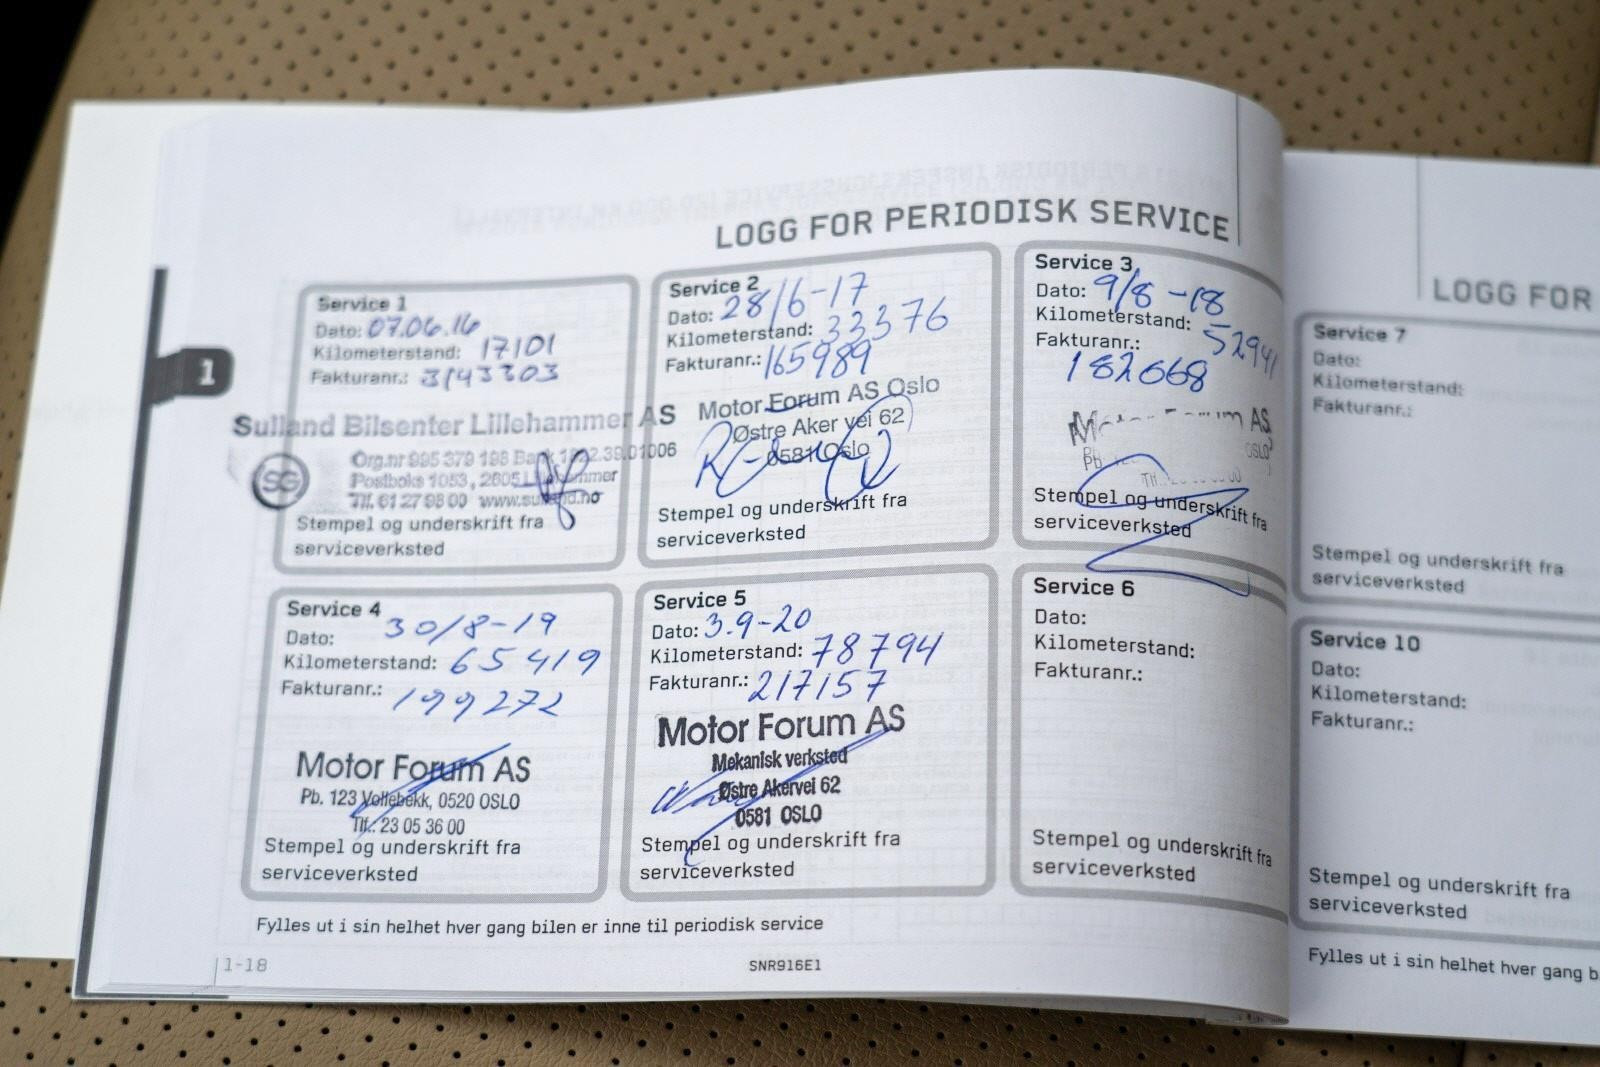 LOGG FOR PERIODISK SERVICE
Service 1
Dato: 07.06.16
Kilometerstand: 17101
Fakturanr.: 3143303
Sulland Bilsenter Lillehammer AS
SG
Org.nr 995 379 198 Bank 1822.39.01006
Postboks 1053, 2605 Lillehammer
Tlf. 61 27 98 00 www.sulland.no
Stempel og underskrift fra
serviceverksted
Service 2
Dato: 28/6-17
Kilometerstand: 33376
Fakturanr.: 165989
Motor Forum AS Oslo
Østre Aker vei 62
0581 Oslo
Stempel og underskrift fra
serviceverksted
Service 3
Dato: 9/8-18
Kilometerstand: 52941
Fakturanr.:
182668
Motor Forum AS
OSLO
Stempel og underskrift fra
serviceverksted
Service 4
Dato: 30/8-19
Kilometerstand: 65419
Fakturanr.: 199272
Motor Forum AS
Pb. 123 Vollebekk, 0520 OSLO
Tlf.: 23 05 36 00
Stempel og underskrift fra
serviceverksted
Service 5
Dato: 3.9-20
Kilometerstand: 78794
Fakturanr.: 217157
Motor Forum AS
Mekanisk verksted
Østre Akervei 62
0581 OSLO
Stempel og underskrift fra
serviceverksted
Service 6
Dato:
Kilometerstand:
Fakturanr.:
Stempel og underskrift fra
serviceverksted
Fylles ut i sin helhet hver gang bilen er inne til periodisk service
1
1-18
SNR916E1
LOGG FOR
Service 7
Dato:
Kilometerstand:
Fakturanr.:
Stempel og underskrift fra
serviceverksted
Service 10
Dato:
Kilometerstand:
Fakturanr.:
Stempel og underskrift fra
serviceverksted
Fylles ut i sin helhet hver gang b